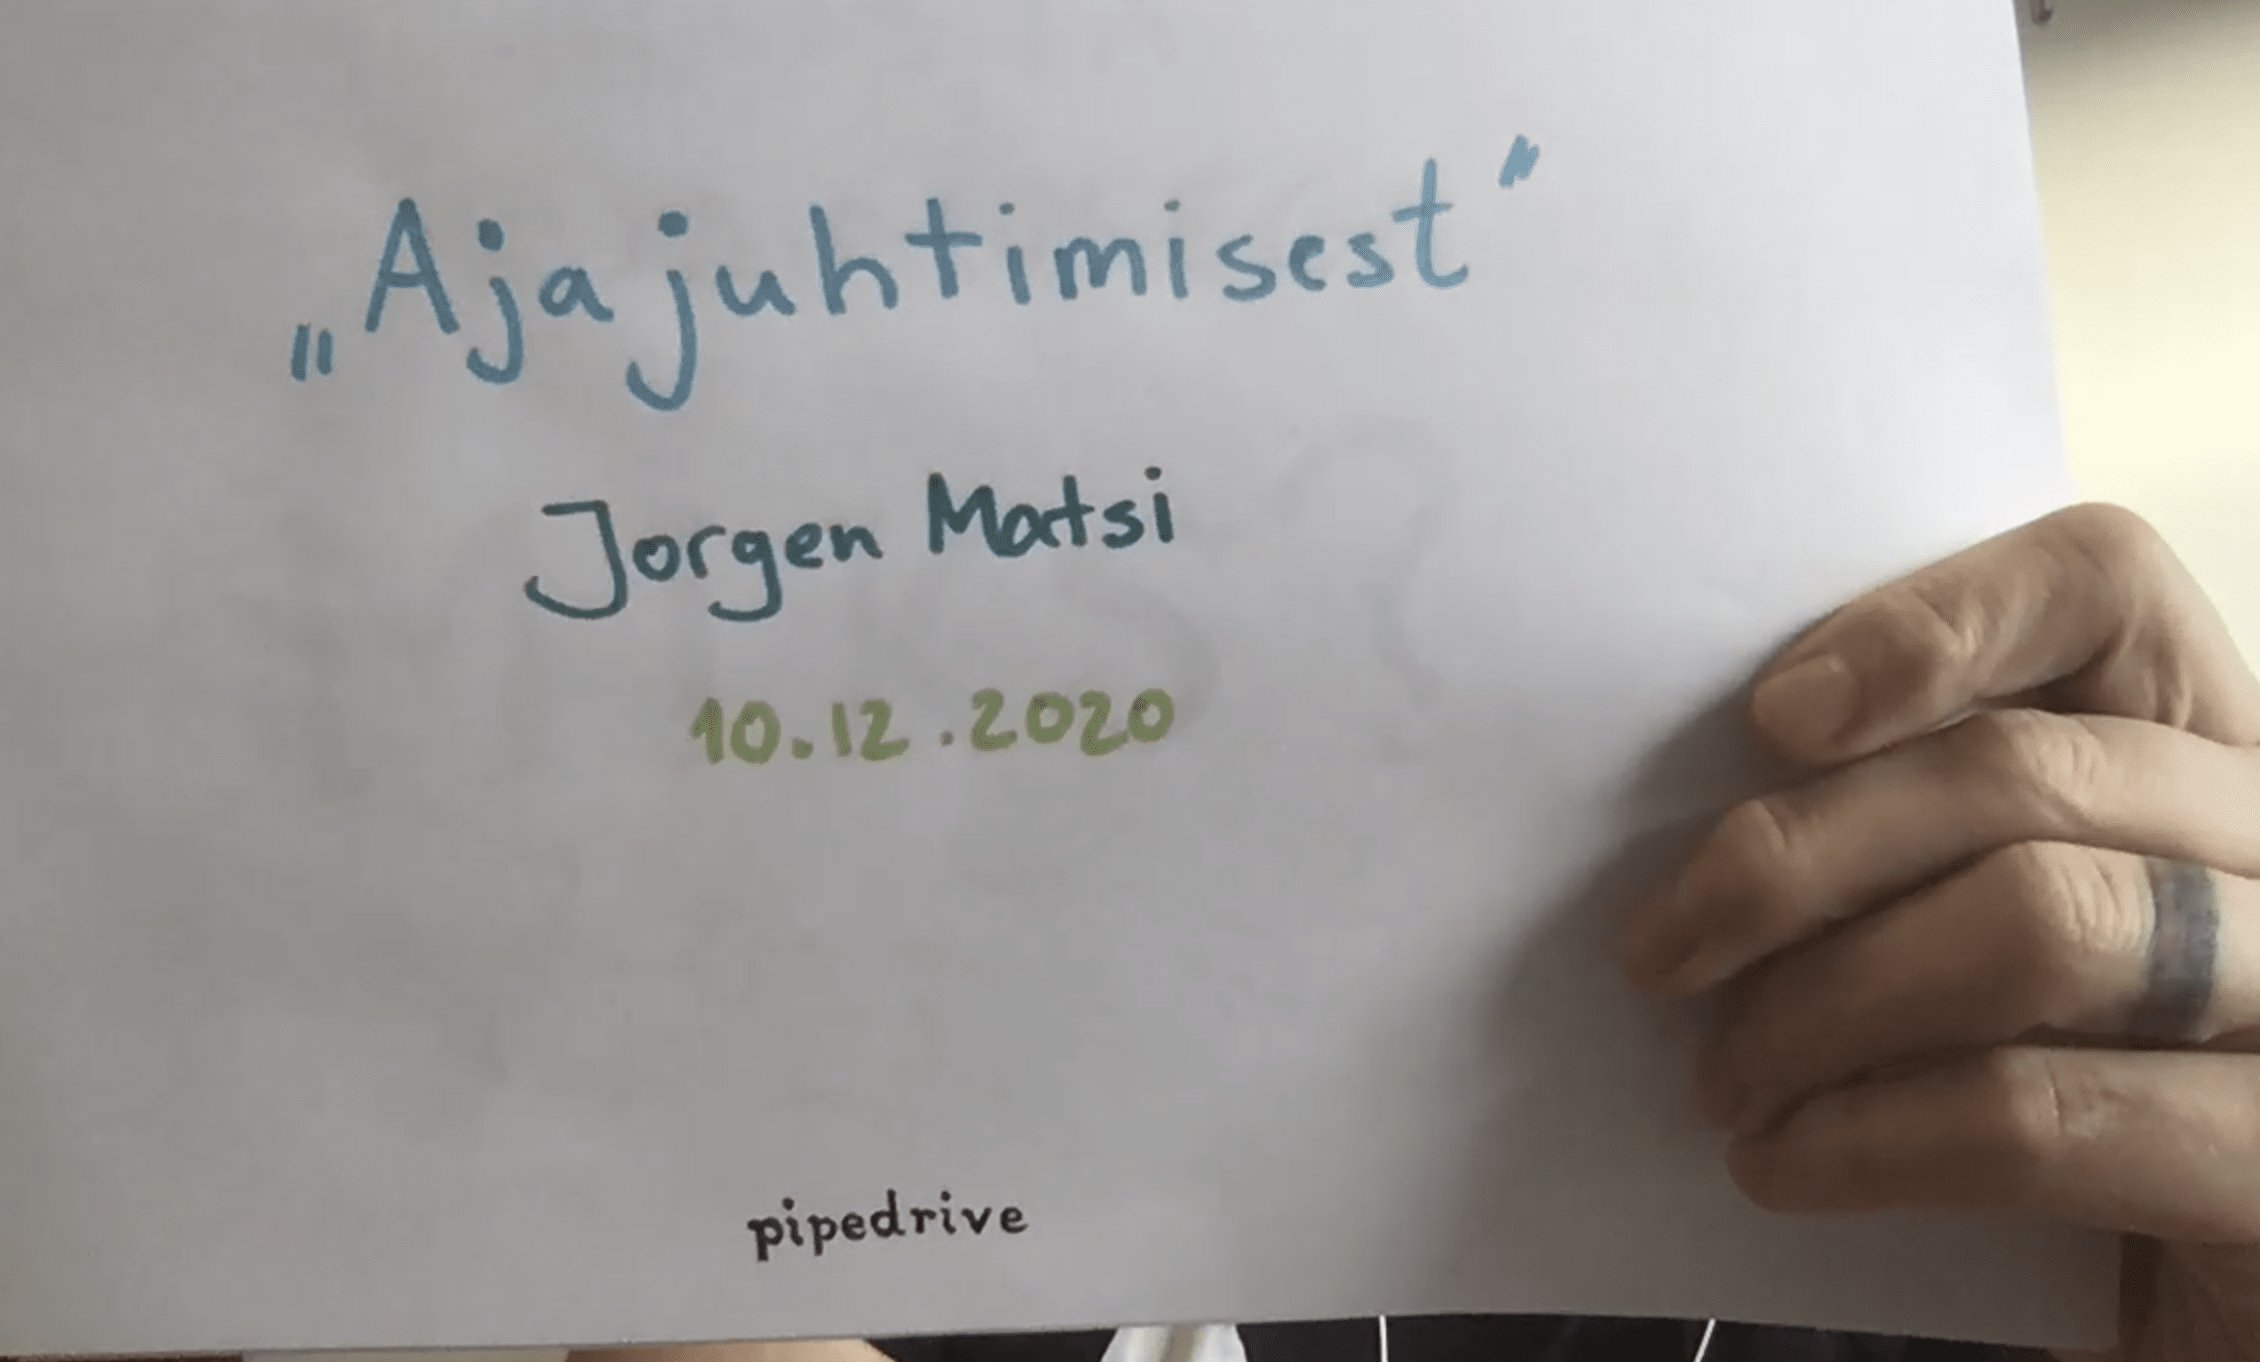 „Ajajuhtimisest”
Jorgen Matsi
10.12.2020
pipedrive